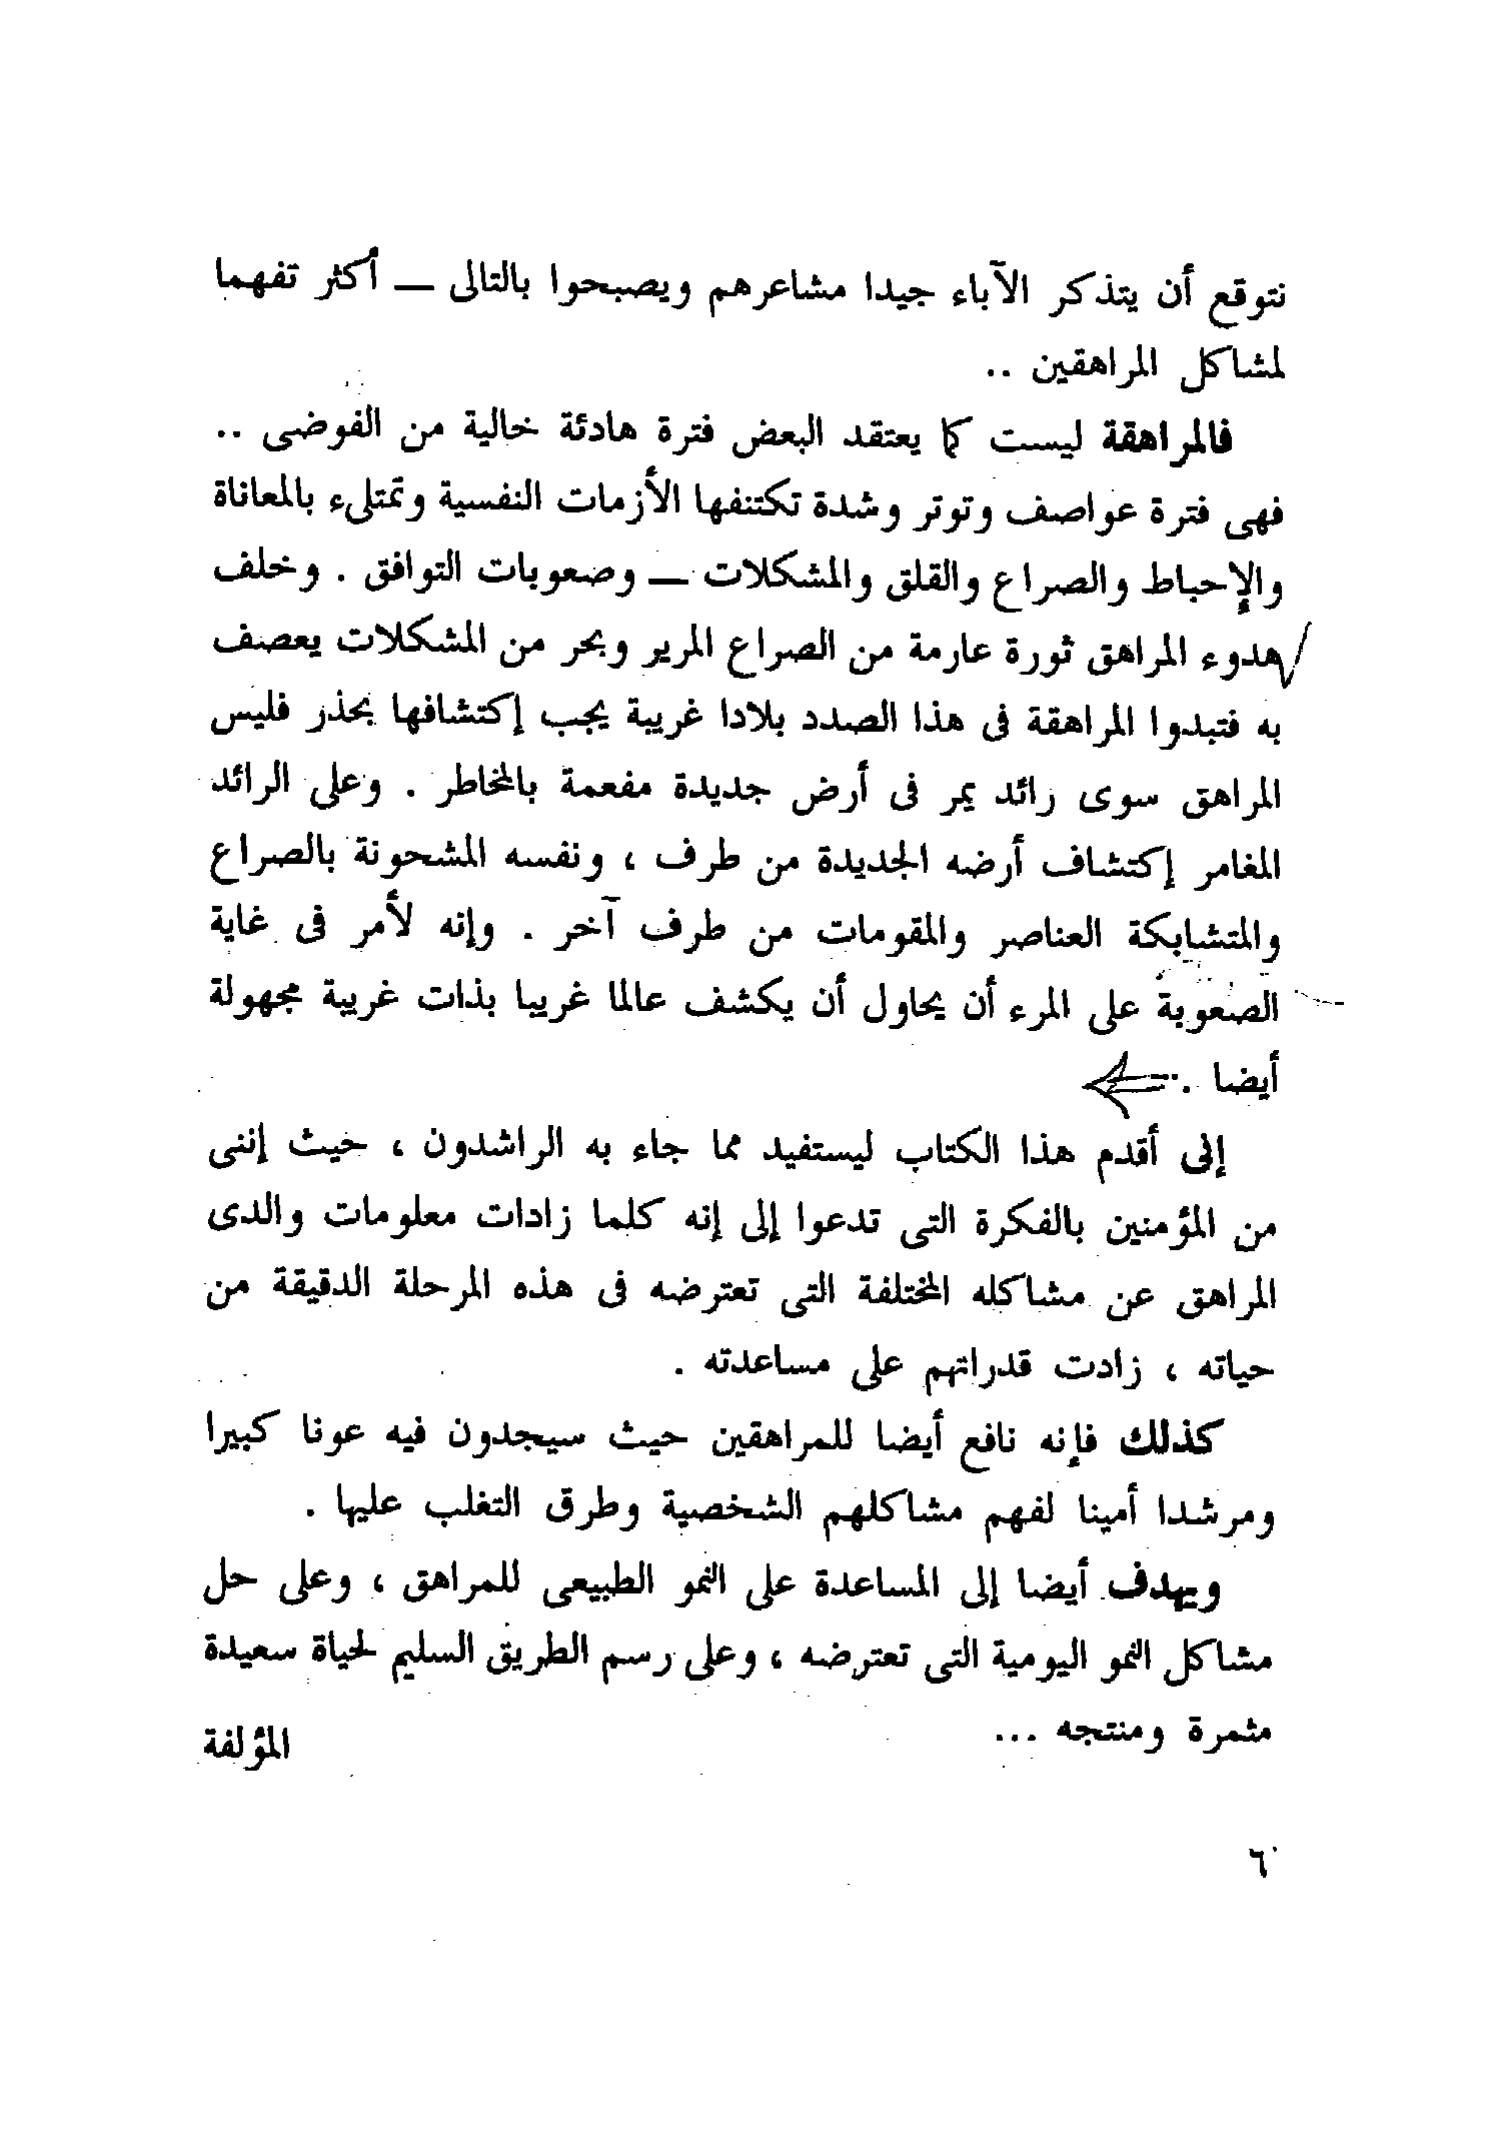 نتوقع أن يتذكر الآباء جيدا مشاعرهم ويصبحوا بالتالى — أكثر تفهما
لمشاكل المراهقين ..
فالمراهقة ليست كما يعتقد البعض فترة هادئة خالية من الفوضى ..
فهى فترة عواصف وتوتر وشدة تكتنفها الأزمات النفسية وتمتلىء بالمعاناة
والإحباط والصراع والقلق والمشكلات — وصعوبات التوافق . وخلف
هدوء المراهق ثورة عارمة من الصراع المرير وبحر من المشكلات يعصف
به فتبدوا المراهقة فى هذا الصدد بلادا غريبة يجب إكتشافها بحذر فليس
المراهق سوى رائد يمر فى أرض جديدة مفعمة بالمخاطر . وعلى الرائد
المغامر إكتشاف أرضه الجديدة من طرف ، ونفسه المشحونة بالصراع
والمتشابكة العناصر والمقومات من طرف آخر . وإنه لأمر فى غاية
الصعوبة على المرء أن يحاول أن يكشف عالما غريبا بذات غريبة مجهولة
أيضا ..
إنى أقدم هذا الكتاب ليستفيد مما جاء به الراشدون ، حيث إننى
من المؤمنين بالفكرة التى تدعوا إلى إنه كلما زادات معلومات والدى
المراهق عن مشاكله المختلفة التى تعترضه فى هذه المرحلة الدقيقة من
حياته ، زادت قدراتهم على مساعدته .
كذلك فإنه نافع أيضا للمراهقين حيث سيجدون فيه عونا كبيرا
ومرشدا أمينا لفهم مشاكلهم الشخصية وطرق التغلب عليها .
ويهدف أيضا إلى المساعدة على النمو الطبيعى للمراهق ، وعلى حل
مشاكل النمو اليومية التى تعترضه ، وعلى رسم الطريق السليم لحياة سعيدة
مثمرة ومنتجه ...
المؤلفة
٦